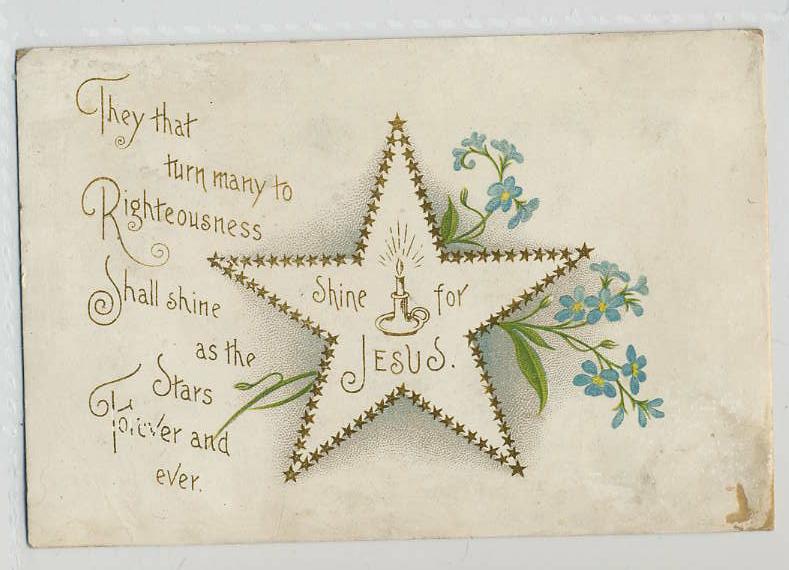 They that
turn many to
Righteousness
Shall shine
as the
Stars
Forever and
ever.
Shine for
JESUS.